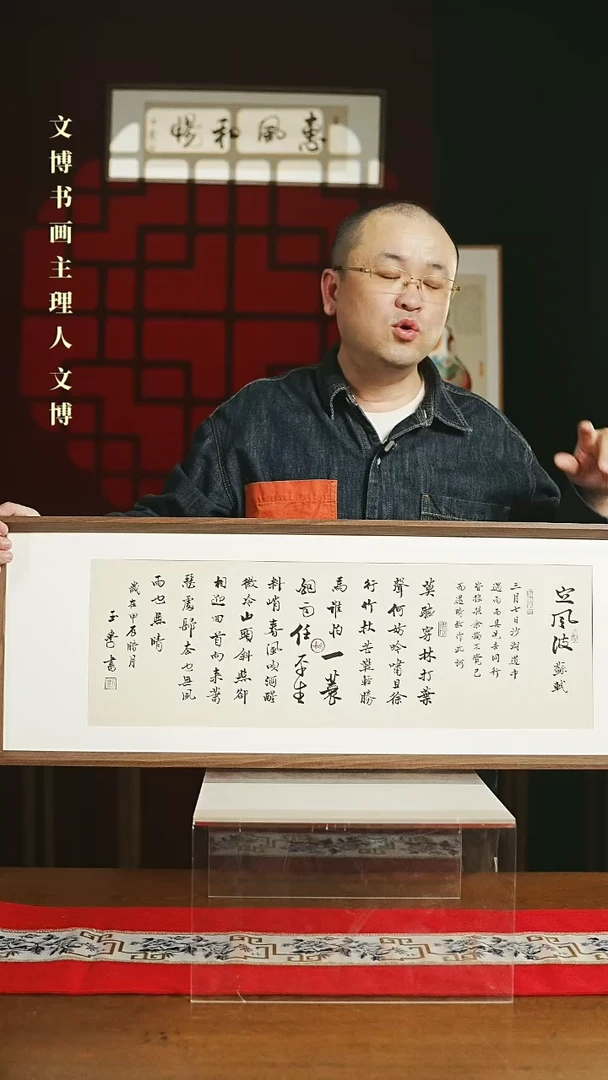 文博书画主理人 文博
惠風和暢
定風波 蘇軾
三月七日沙湖道中
遇雨雨具先去同行
皆狼狽余獨不覺已
而遂晴故作此詞
莫聽穿林打葉
聲何妨吟嘯且徐
行竹杖芒鞋輕勝
馬誰怕一蓑
烟雨任平生
料峭春風吹酒醒
微冷山頭斜照卻
相迎回首向來蕭
瑟處歸去也無風
雨也無晴
歲在甲辰腊月
書